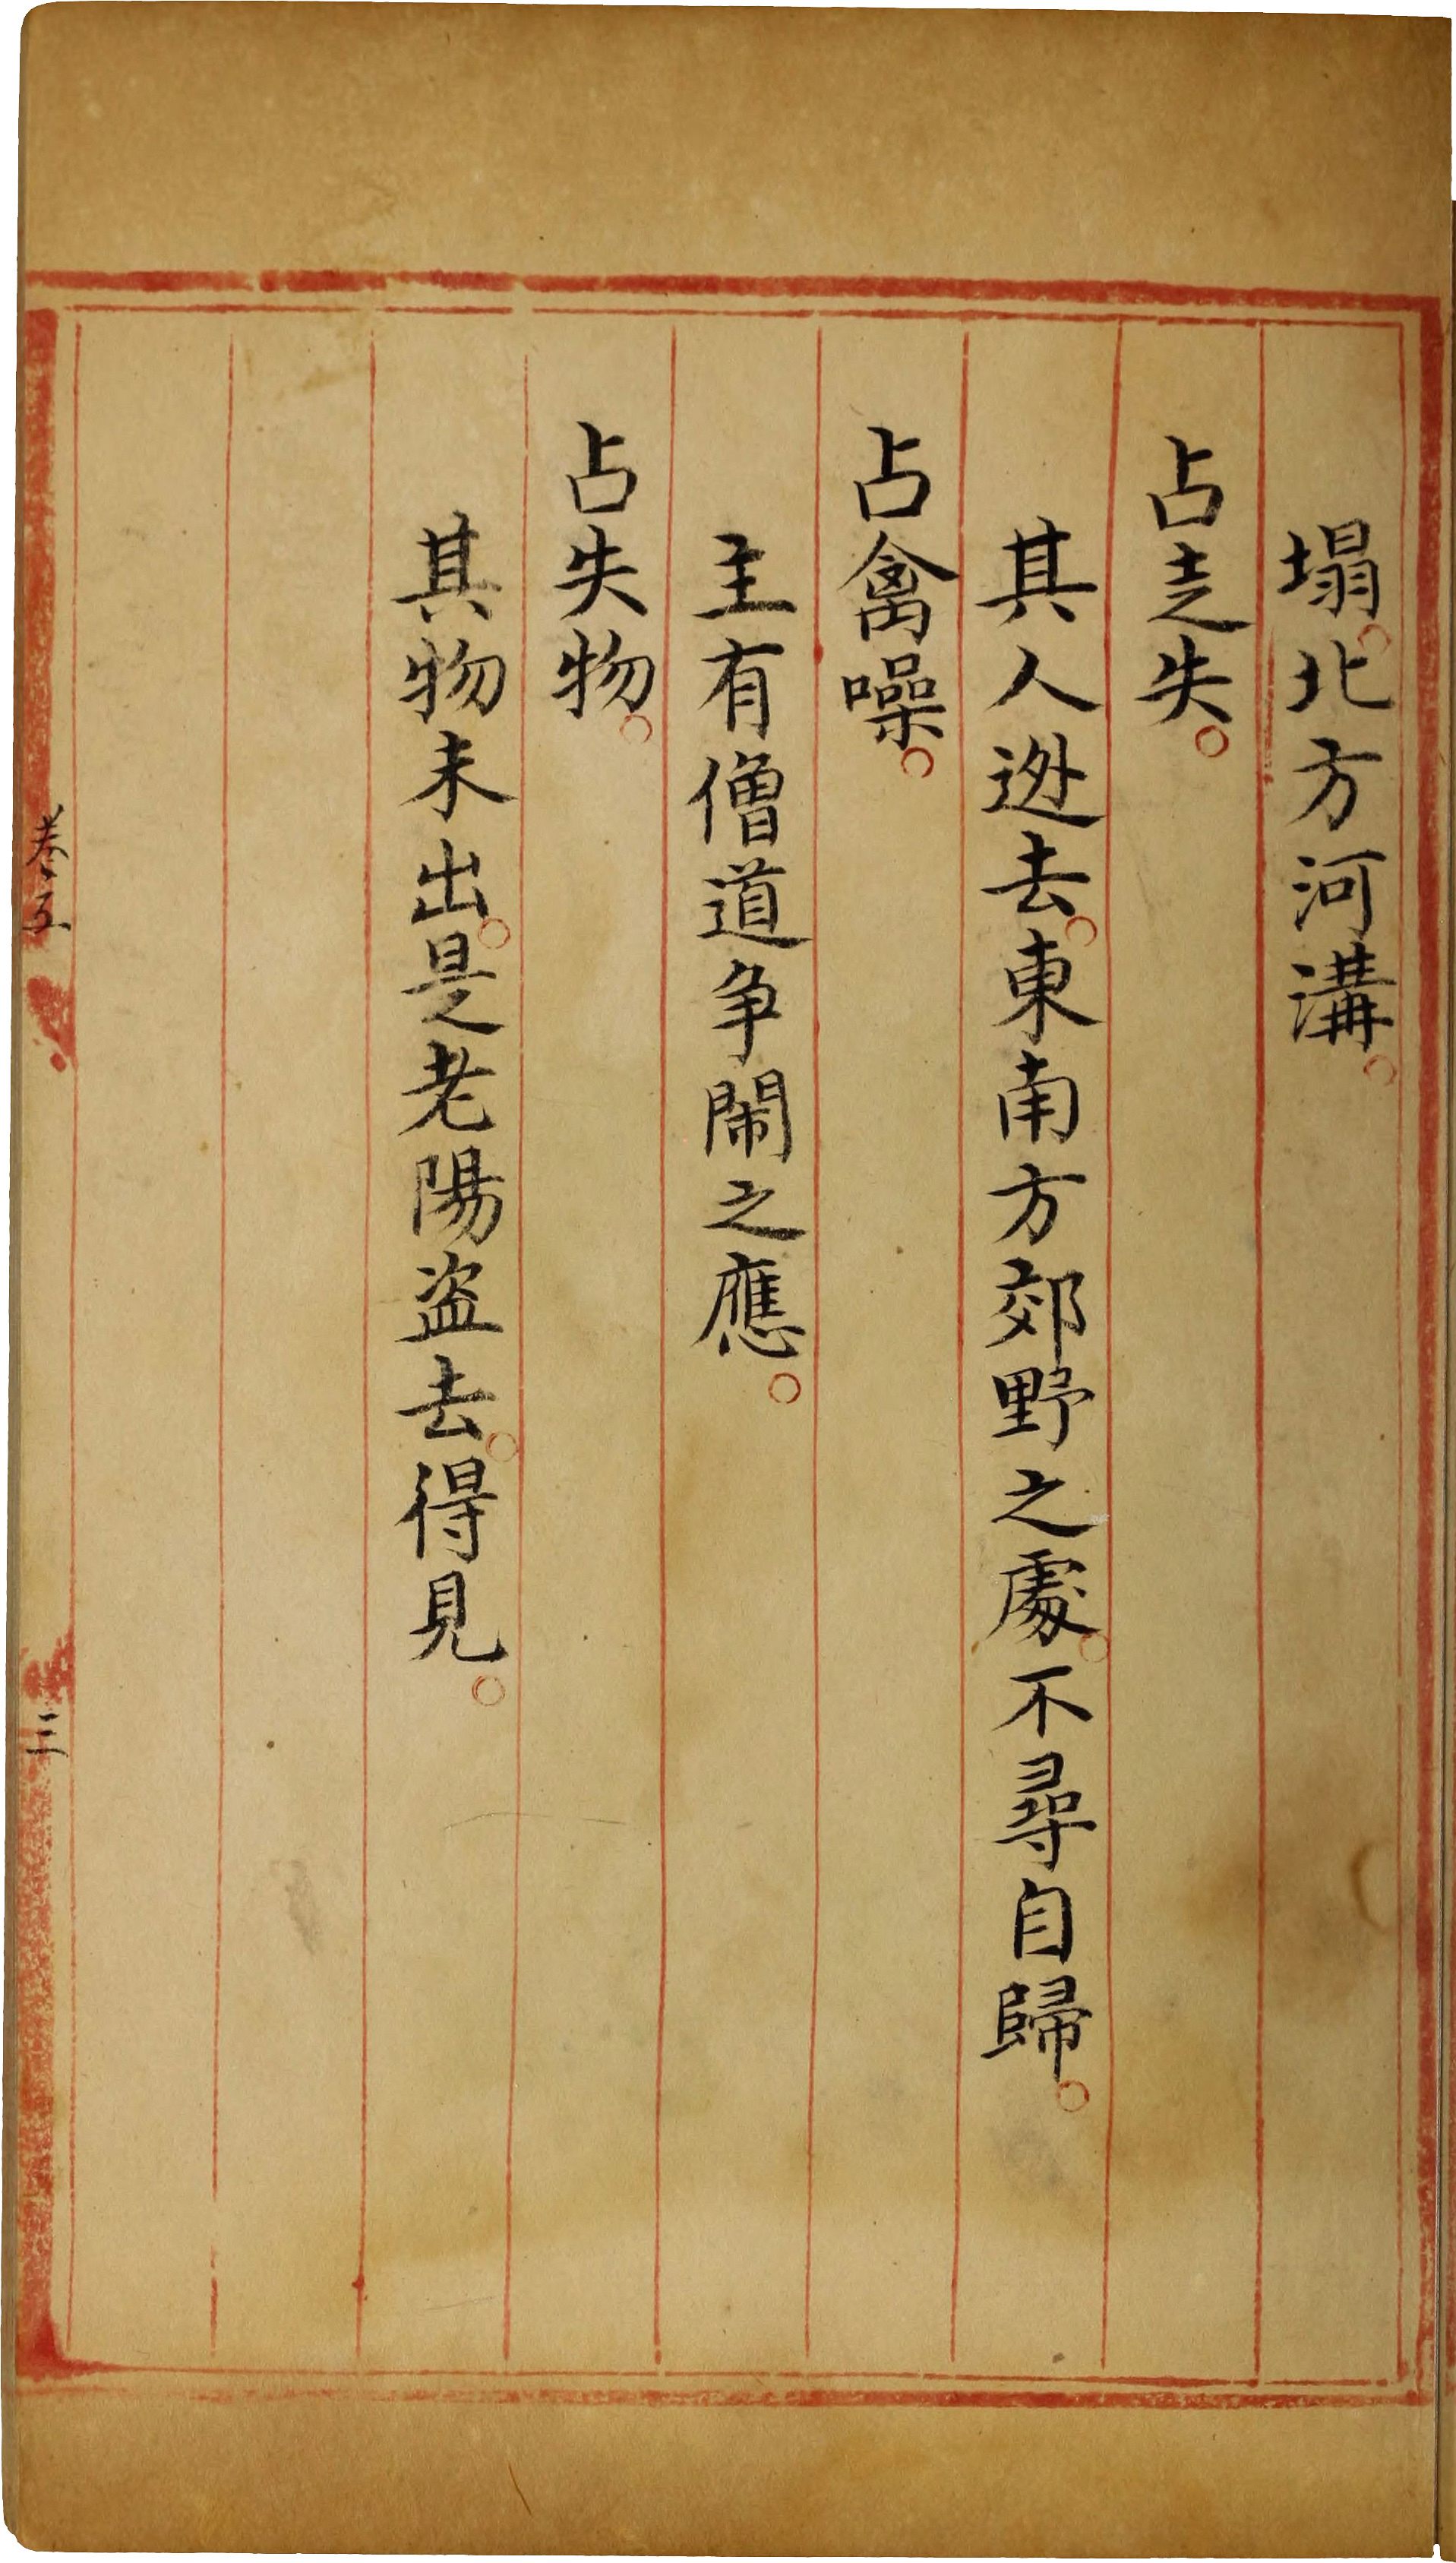 塌。北方河溝。
占走失。
其人迯去。東南方郊野之處。不尋自歸。
占禽噪。
主有僧道争鬧之應。
占失物。
其物未出。是老陽盗去。得見。
卷五
三